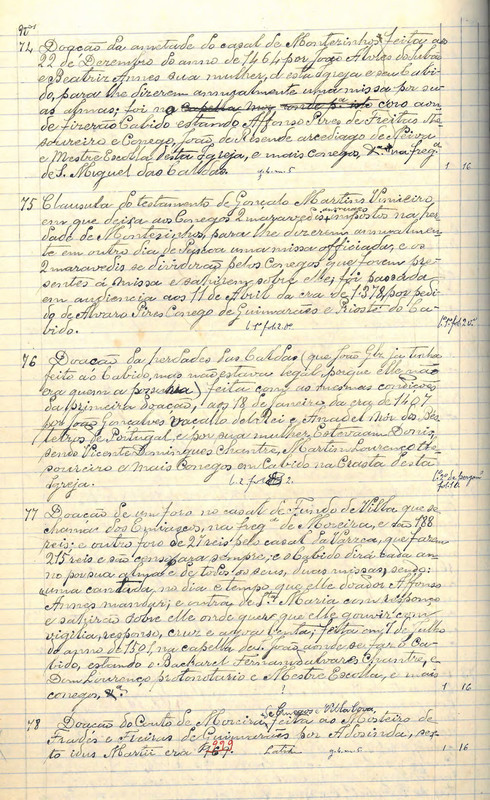 74 Doação da ametade do casal de Montezinho, feita aos
22 de Dezembro do anno de 1464 por João Alvres do
e Beatriz Annes sua mulher, a esta Igreja e seu Cabi-
do, para lhe dizerem annualmente uma missa por su-
as almas; foi no coro aon-
de fizerão Cabido estando Affonso Pires de Freitas The
soureiro e Conego, João de Resende arcediago de Neiva
e Mestre Escola desta Igreja, e mais conegos, na freg.ª
de S. Miguel das Caldas. 1 16
75 Clausula do testamento de Gonçalo Martins Vimieiro,
em que deixa aos Conegos 2 maravedis impostos na her-
dade de Montezinhos, para lhe dizerem annualmen-
te em outro dia de Pascoa uma missa officiada, e os
2 maravedis se dividirão pelos Conegos que forem pre-
sentes á missa e sahirem sobre elle, foi passada
em audiencia aos 11 de Abril da era de 1378, por pedi-
do de Alvaro Pires Conego de Guimarães e Prioste do Ca-
bido.
76 Doação da herdade das Caldas (que João Glz ja tinha
feito ao Cabido, mas não estava legal porque elle não
era quem a possuia) feita com as mesmas condições
da primeira doação, aos 18 de Janeiro da era de 1407
por João Gonçalves vacallo del Rei e Anadel Mor dos Bes-
teiros de Portugal, e por sua mulher Estevaam Doniz,
sendo Vicente Domingues Chantre, Martim Lourenço The-
soureiro e mais Conegos em Cabido na Crasta desta
Igreja.
77 Doação de um foro no casal de Fundo de Villa que se
chama dos Embiaços, na freg.ª de Moreira, e são 188
reis; e outro foro de 27 reis pelo casal da Varrea, que fazem
215 reis e são censo para sempre, e o Cabido dirá cada an-
no por sua alma e de todos os seus, duas missas, sendo:
uma cantada, no dia e tempo que elle doador Affonso
Annes mandar; e outra de S.ta Maria com responço
e sahirão sobre elle onde quer que elle jouvir com
vigilia, responso, cruz e agoa benta; feita em 7 de julho
do anno de 1501, na capella de S. João aonde se faz o Ca-
bido, estando o Bacharel Fernand'alvares Chantre, e
Dom Lourenço protonotario e Mestre Escola, e mais
conegos, 1 16
78 Doação do Couto de Moreira, feita ao Mosteiro de
Frades e Freiras de Guimarães por Adosinda, sex-
to idus Martii era 1 16